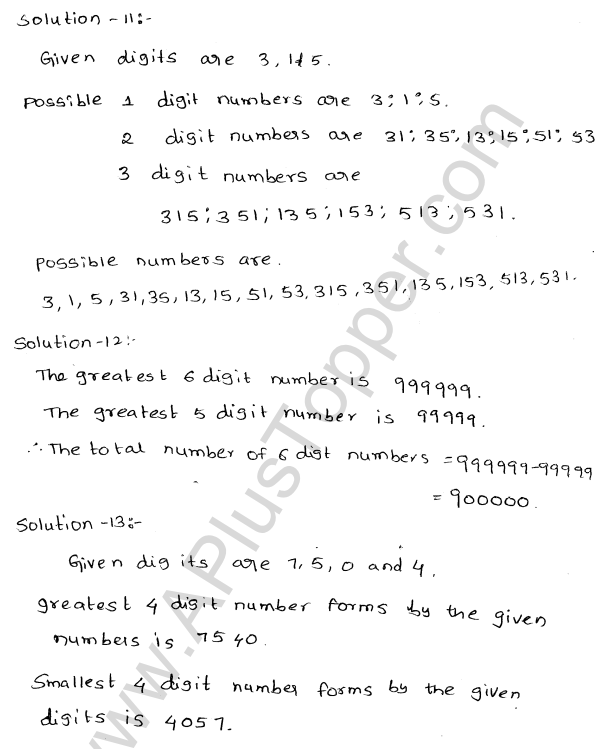 Solution -11:-
Given digits are 3, 1&5.
Possible 1 digit numbers are 3; 1; 5.
2 digit numbers are 31; 35; 13; 15; 51; 53
3 digit numbers are
315; 351; 135; 153; 513; 531.
Possible numbers are.
3, 1, 5, 31, 35, 13, 15, 51, 53, 315, 351, 135, 153, 513, 531.
Solution-12:-
The greatest 6 digit number is 999999.
The greatest 5 digit number is 99999.
∴ The total number of 6 digt numbers = 999999-99999
= 900000.
Solution -13:-
Given digits are 7, 5, 0 and 4.
greatest 4 digit number forms by the given
numbers is 7540.
Smallest 4 digit number forms by the given
digits is 4057.
www.APlusTopper.com